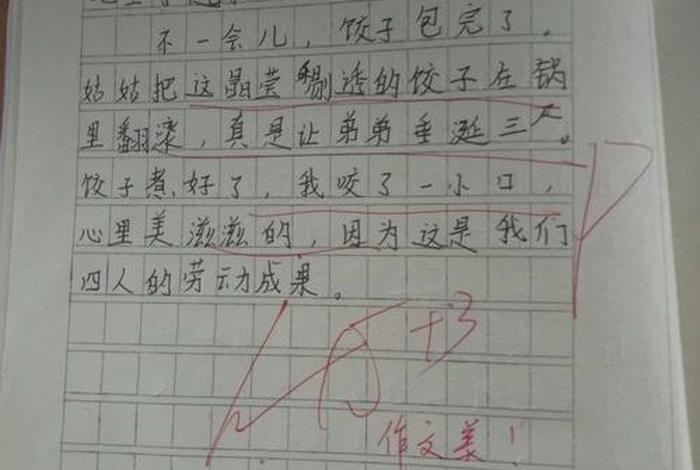 不一会儿，饺子包完了。
姑姑把这晶莹剔透的饺子在锅
里翻滚，真是让弟弟垂涎三尺。
饺子煮好了，我咬了一小口，
心里美滋滋的，因为这是我们
四人的劳动成果。
+3
作文美！